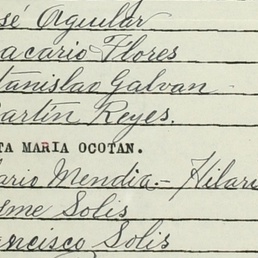 sé Aguilar
acario Flores
tanislao Galvan
artín Reyes.
TA MARIA OCOTAN.
ario Mendia.- Hilari
sme Solis
ancisco Solis